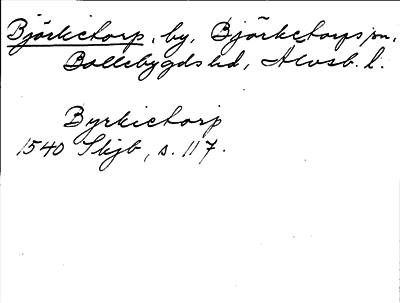 Björketorp, by, Björketorps sn,
Bollebygds hd, Älvsb. l.
Byrkictorp
1540 Skjb, s. 117.